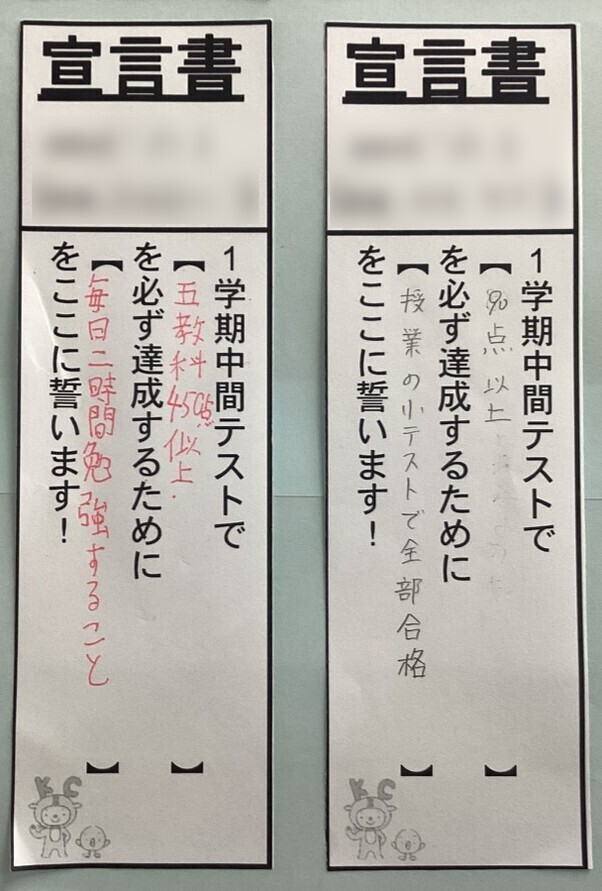 宣言書
1学期中間テストで
【五教科450点以上.】
を必ず達成するために
【毎日二時間勉強すること】
をここに誓います!
KC
宣言書
1学期中間テストで
【90点以上】
を必ず達成するために
【授業の小テストで全部合格】
をここに誓います!
KC